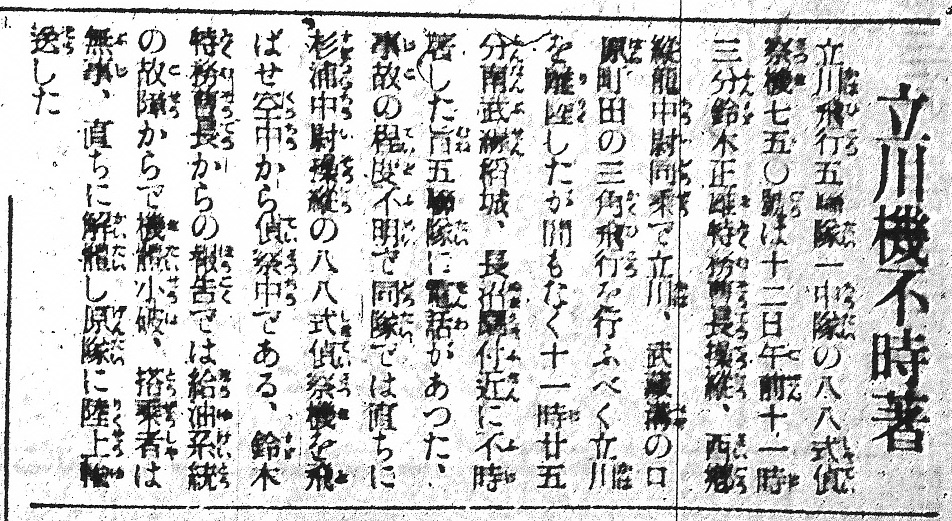 立川機不時著
立川飛行五聯隊一中隊の八八式偵
察機七五〇號は十二日午前十一時
三分鈴木正雄特務曹長操縱、西郷
縱龍中尉同乘で立川、武藏溝のロ
原町田の三角飛行を行ふべく立川
を離陸したが間もなく十一時廿五
分南武線稻城、長沼驛付近に不時
著した旨五聯隊に電話があつた、
事故の程度不明で同隊では直ちに
杉浦中尉操縱の八八式偵察機を飛
ばせ空中から偵察中である、鈴木
特務曹長からの報告では給油系統
の故障からで機體小破、搭乘者は
無事、直ちに解體し原隊に陸上輸
送した